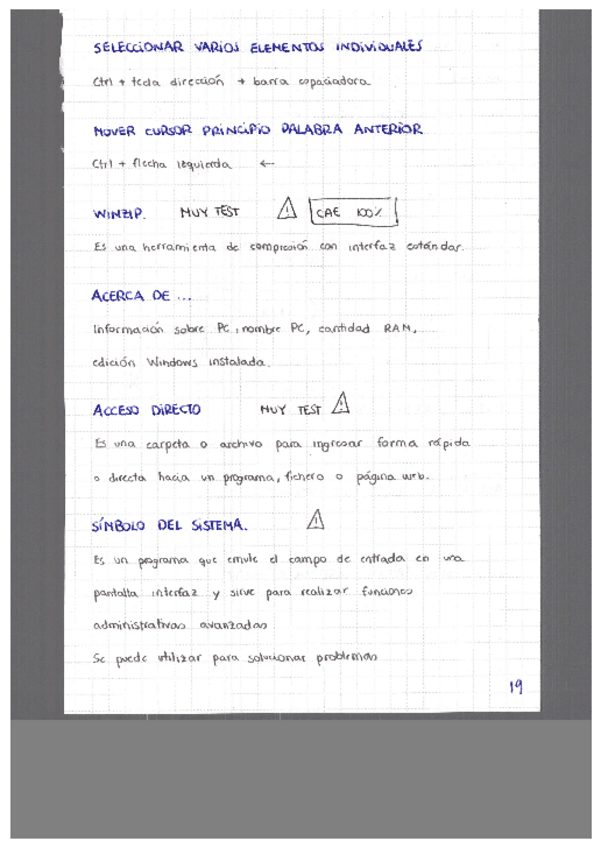 SELECCIONAR VARIOS ELEMENTOS INDIVIDUALES
Ctrl + tecla dirección + barra espaciadora
MOVER CURSOR PRINCIPIO PALABRA ANTERIOR
Ctrl + flecha izquierda ←
WINZIP. MUY TEST ⚠ CAE 100%
Es una herramienta de compresión con interfaz estándar.
ACERCA DE ...
Información sobre PC, nombre PC, cantidad RAM,
edición Windows instalada.
ACCESO DIRECTO MUY TEST ⚠
Es una carpeta o archivo para ingresar forma rápida
o directa hacia un programa, fichero o página web.
SÍMBOLO DEL SISTEMA. ⚠
Es un programa que emule el campo de entrada en una
pantalla interfaz y sirve para realizar funciones
administrativas avanzadas
Se puede utilizar para solucionar problemas
19